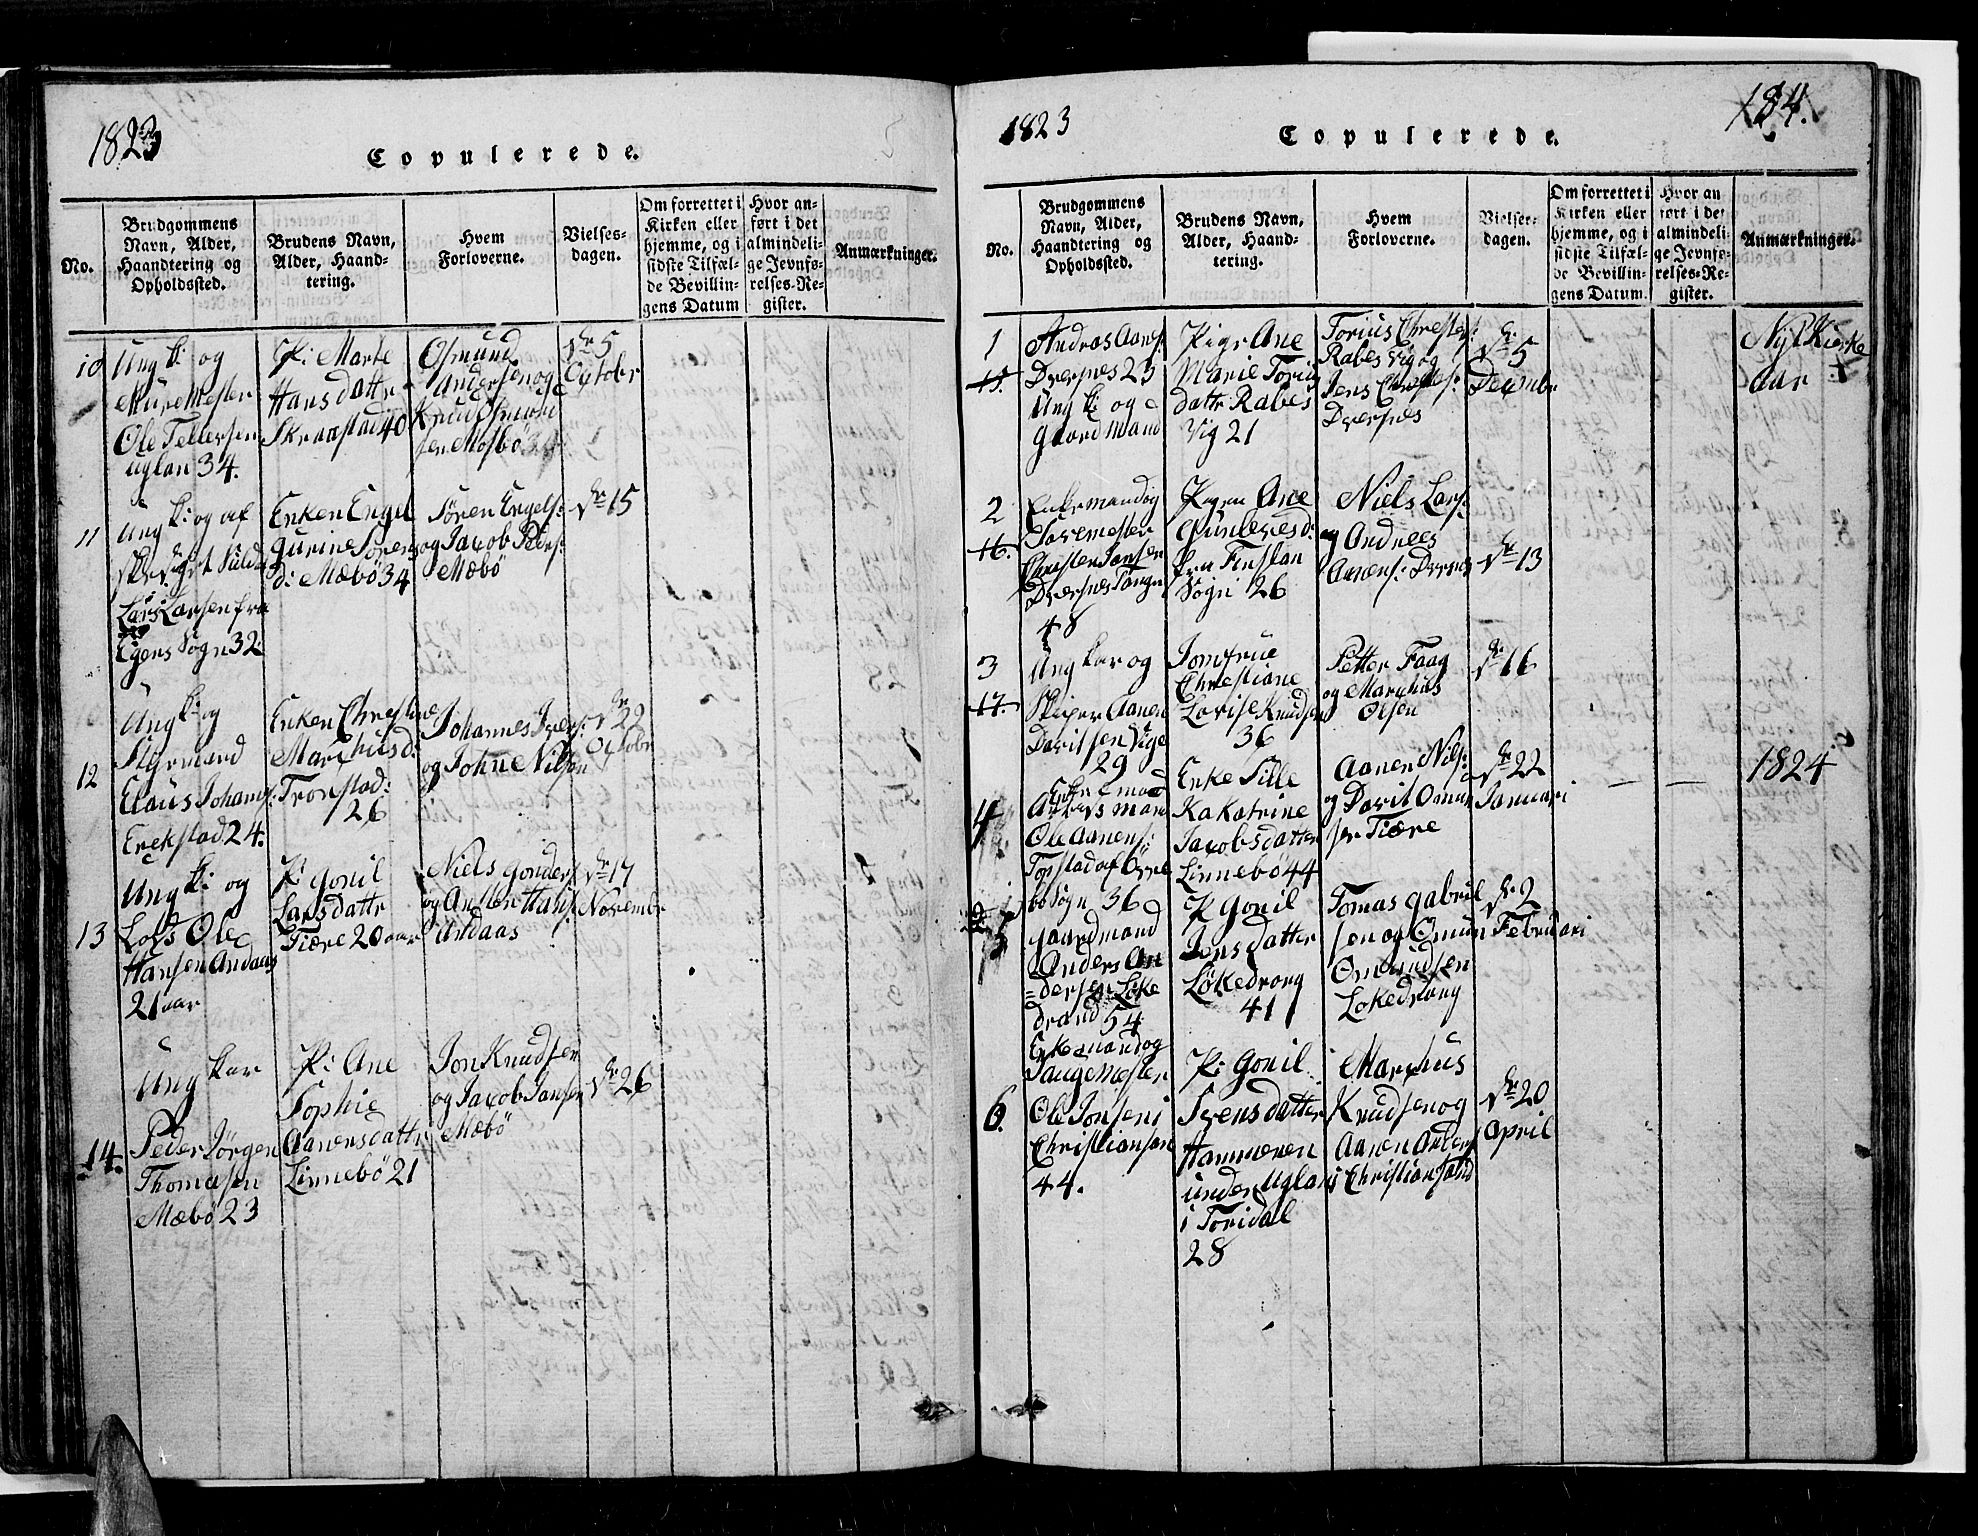 1823
Copulerede.
No.
Brudgommens
Navn, Alder,
Haandtering og
Opholdssted.
Brudens Navn,
Alder, Haand-
tering.
Hvem
Forloverne.
Vielses-
dagen.
Om forrettet i
Kirken eller
hjemme, og i
sidste Tilfæl-
de Bevillin-
gens Datum
Hvor an-
ført i det
almindeli-
ge Jevnfø-
relses-Re-
gister.
Anmærkninger.
10
Ung k: og
Mure Mester
Ole Tellefsen
uglan 34.
Pi: Marte
Hans datter
Skraastad 40
Osmund
Andersen og
Knud Osmun
sen Mosbö
dn 5
Octobr
11
Ung k: og af
Lars Larsen fra
Egens Sogn 32
Enken Engel
Gurine Sörens
d: Mæbö 34
Sören Engels:
og Jacob Peers:
Mæbö
dn 15
12
Ung k: og
Styrmand
Claus Johans:
Erekstad 24.
Enken Christine
Marchusd:
Tronstad:
26
Johannes Ivers:
og Johne Nilsen
dn 22
Octobr
13
Ung k: og
Lods Ole
Hansen Andaas
21 aar
P: Gonil
Larsdattr
Tiære 20 aar
Niels Gonders
og Ansten Hans
Andaas
dn 17
Novembr
14.
Ung kar
Peder Jörgen
Thomasen
Mæbö 23
Pi: Ane
Sophie
Aanensdattr
Linnebö 21
Jon Knudsen
og Jacob Jansen
Mæbö
dn 26
1823
184.
Copulerede.
No.
Brudgommens
Navn, Alder,
Haandtering og
Opholdssted.
Brudens Navn,
Alder, Haand-
tering.
Hvem
Forloverne.
Vielses-
dagen.
Om forrettet i
Kirken eller
hjemme, og i
sidste Tilfæl-
de Bevillin-
gens Datum.
Hvor an-
ført i det
almindeli-
ge Jevnfø-
relses-Re-
gister.
Anmærkninger.
1
15.
Andras Aans:
Dversnes 23
Ung k: og
Gaard Mand
Pige Ane
Marie Toriu
datter Rabes
Vig 21
Torius Chrestens:
Rabes Vig og
Jens Chrestens:
Dversnes
dn 5
Decembr
Nyt Kirke
aar
2
16.
Enkemand og
Toremester
Christen Jansen
Dversnes Tangen
48
Pigen Ane
Gunleves d:
fra Finslan
Sogn 26
Niels Lars:
og Andrees
Aanens: Dversnes
dn 13
3
17.
Ung kar og
Skiper Aanen
Davitsen Vige
29
Jomfrue
Christiane
Lovise Knudsen
36
Petter Faag
og Marchus
Olsen
dn 16
4
Enke mand
Arbeds mand
Ole Aanens:
Topstad af Ovre
bö Sogn 36
Enke Sille
Ka Katrine
Jacobsdatter
Linnebö 44
Aanen Nils:
og Davit Omun
sen Tiære
dn 22
Januari
1824
gaardmand
Anders An
=dersen Löke
drand 54
P Gonil
Jens datter
Lökedrang
41
Tomas Gabriel
sen og Omun
Omundsen
Lokedrang
dn 2
Februari
6.
Enkemand og
Tauge Mester
Ole Jonsen i
Christiansan
44.
Pi: Gonil
Svensdatter
Hammeren
under Uglan
i Toridal
28
Marchus
Knudsen og
Aanen Anders
i Christiansand
dn 20
April